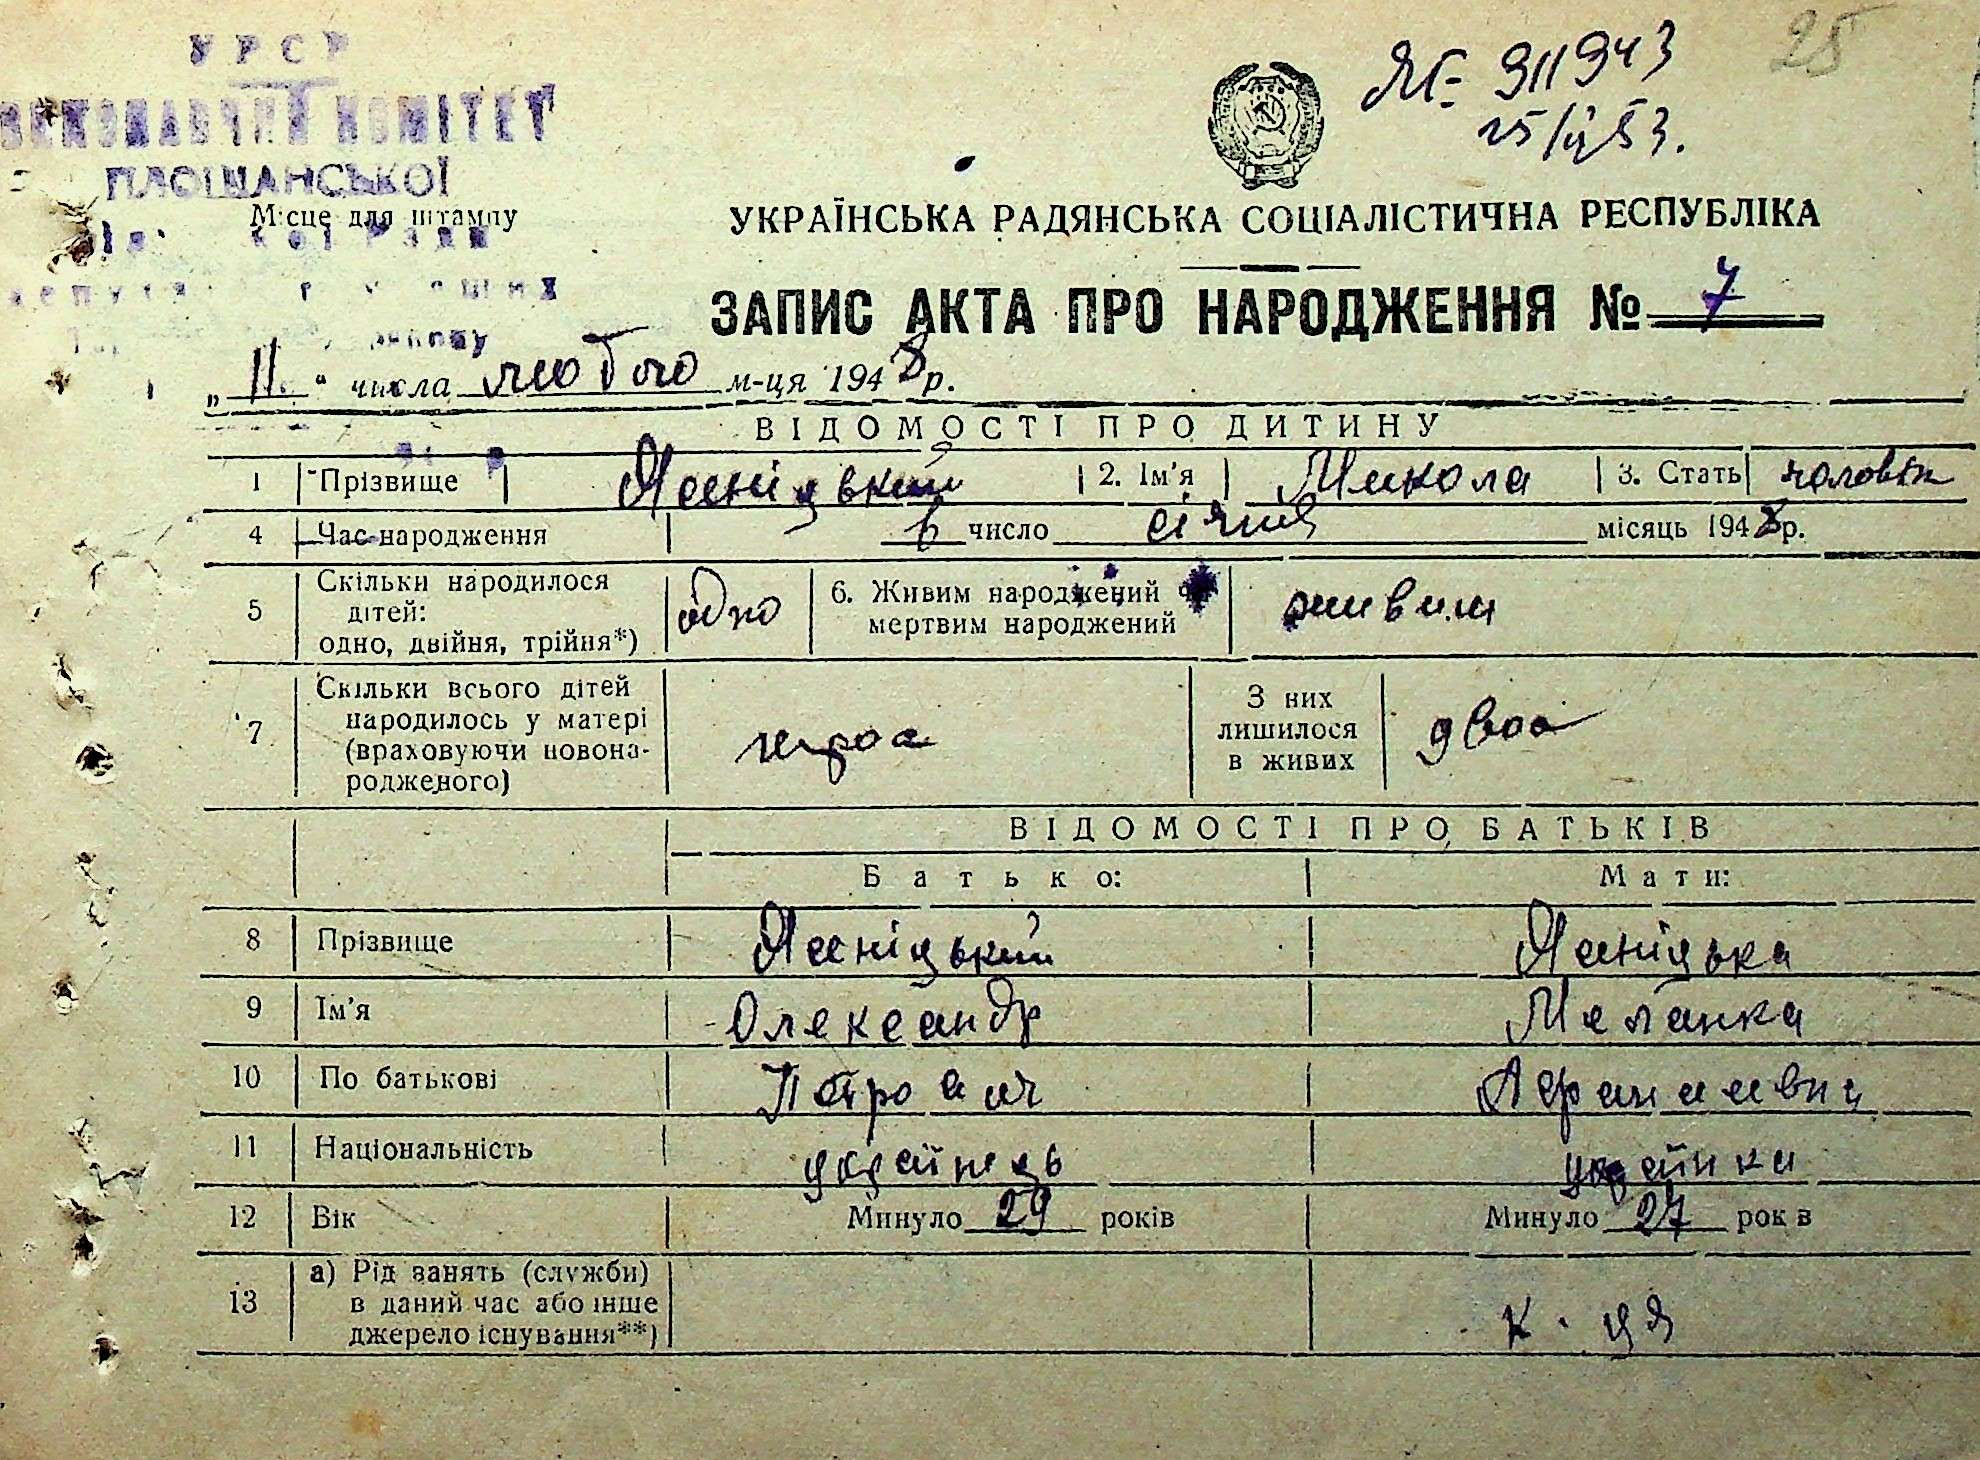 УРСР
ВИКОНАВЧИЙ КОМІТЕТ
ПЛОЩАНСЬКОЇ
Місце для штампу
25
ЯЕ 911943
УКРАЇНСЬКА РАДЯНСЬКА СОЦІАЛІСТИЧНА РЕСПУБЛІКА
ЗАПИС АКТА ПРО НАРОДЖЕННЯ № 7
„11“ числа лютого м-ця 1948 р.
ВІДОМОСТІ ПРО ДИТИНУ
1 Прізвище Ясніцький 2. Ім'я Микола 3. Стать чоловік
4 Час народження 6 число січня місяць 1948 р.
5 Скільки народилося дітей: одно, двійня, трійня*) одно 6. Живим народжений чи мертвим народжений живим
7 Скільки всього дітей народилось у матері (враховуючи новонародженого) троє З них лишилося в живих двоє
ВІДОМОСТІ ПРО БАТЬКІВ
Батько: Мати:
8 Прізвище Ясніцький Ясніцька
9 Ім'я Олександр Меланка
10 По батькові Петрович
11 Національність українець українка
12 Вік Минуло 29 років Минуло 27 років
13 а) Рід занять (служби) в даний час або інше джерело існування**) к-ця